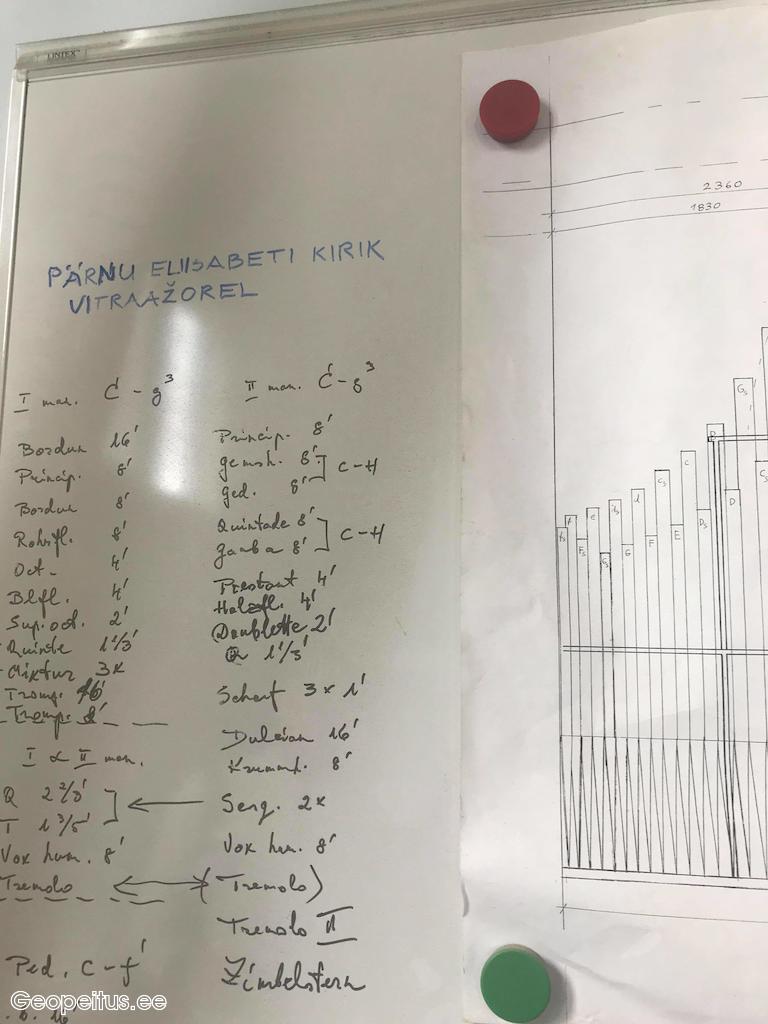 LINTEX
PÄRNU ELIISABETI KIRIK
VITRAAŽOREL
I man. C - g³
Bordun 16'
Princip. 8'
Bordun 8'
Rohrfl. 8'
Oct. 4'
Blfl. 4'
Sup. oct. 2'
Quinte 1 1/3'
Mixtur 3x
Tromp. 16'
Tromp. 8'
I & II man.
Q 2 2/3'
T 1 3/5'
Vox hum. 8'
Tremolo
Ped. C - f'
II man. C - g³
Princip. 8'
gemsh. 8' C - H
ged. 8'
Quintade 8' C - H
gamba 8'
Prestant 4'
Holzfl. 4'
Doublette 2'
Q 1 1/3'
Scharf 3x 1'
Dulcian 16'
Krummh. 8'
Sesq. 2x
Vox hum. 8'
(Tremolo)
Tremolo II
Zimbelstern
2360
1830
Geopeitus.ee